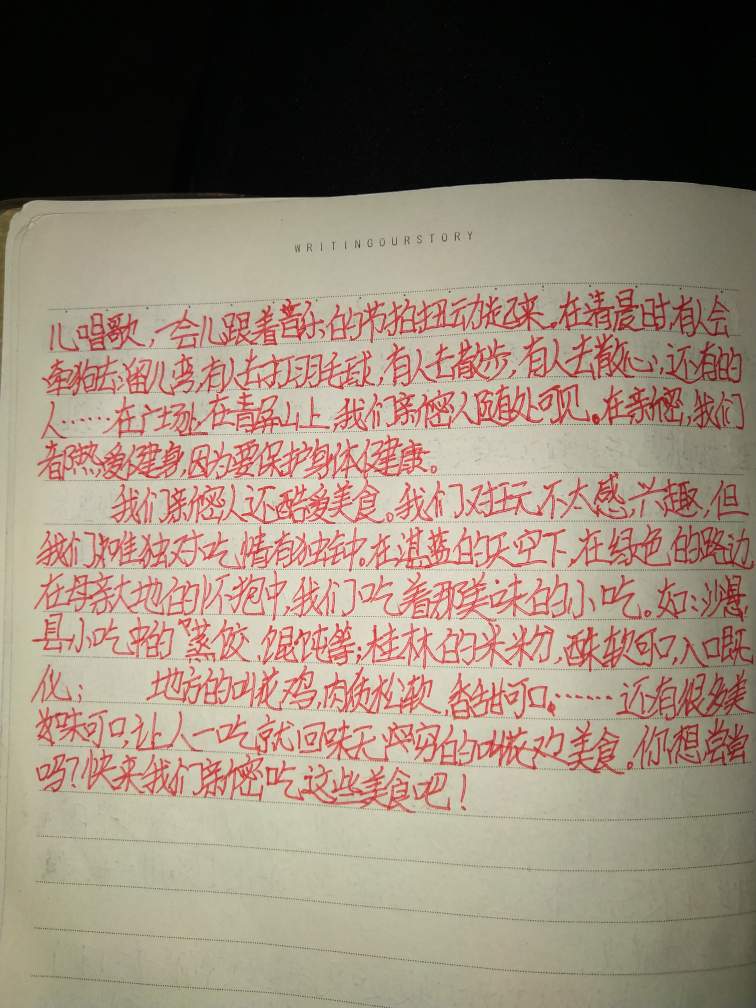 WRITINGOURSTORY
儿唱歌，一会儿跟着音乐的节拍扭动起来。在清晨时，有人会
牵狗去溜儿弯，有人去打羽毛球，有人去散步，有人去散心，还有的
人……在广场上，在青屏山上，我们新密人随处可见。在新密，我们
都热爱健身，因为要保护身体健康。
我们新密人还酷爱美食。我们对玩不太感兴趣，但
我们却唯独对吃情有独钟。在湛蓝的天空下，在绿色的路边，
在母亲大地的怀抱中，我们吃着那美味的小吃。如：沙县
县小吃中的蒸饺，馄饨等；桂林的米粉，酥软可口，入口既
化； 地方的叫花鸡，肉质松软，香甜可口。……还有很多美
味可口，让人一吃就回味无穷的美食。你想尝尝
吗？快来我们新密吃这些美食吧！